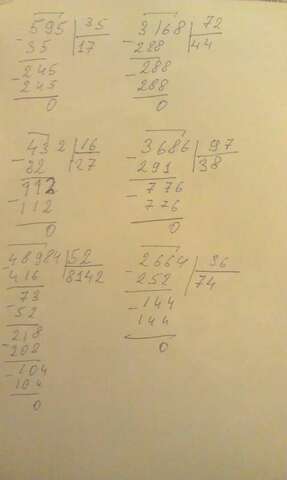 595 | 35
- 35 | 17
- 245
245
0
3168 | 72
- 288 | 44
- 288
288
0
432 | 16
- 32 | 27
112
- 112
0
3686 | 97
- 291 | 38
- 776
776
0
48984 | 52
- 416 | 8142
- 73
52
- 218
208
- 104
104
0
2664 | 36
- 252 | 74
- 144
144
0